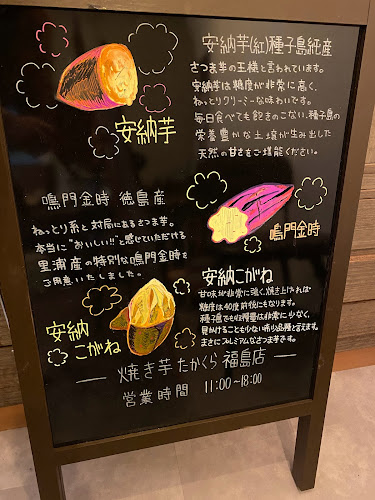 安納芋(紅)種子島純産
さつま芋の王様と言われています。
安納芋は糖度が非常に高く、
ねっとりクリーミーな味わいです。
毎日食べても飽きのこない、種子島の
栄養豊かな土壌が生み出した
天然の甘さをご堪能ください。
安納芋
鳴門金時 徳島産
ねっとり系と対局にあるさつま芋。
本当に"おいしい!!"と感じていただける
里浦産の特別な鳴門金時を
ご用意いたしました。
鳴門金時
安納こがね
甘味が非常に強く、焼き上げれば
糖度は40度前後にもなります。
種子島でも収穫量は非常に少なく、
見かけることも少ない希少品種と言えます。
まさにプレミアムなさつま芋です。
安納
こがね
焼き芋 たかくら 福島店
営業時間 11:00~18:00